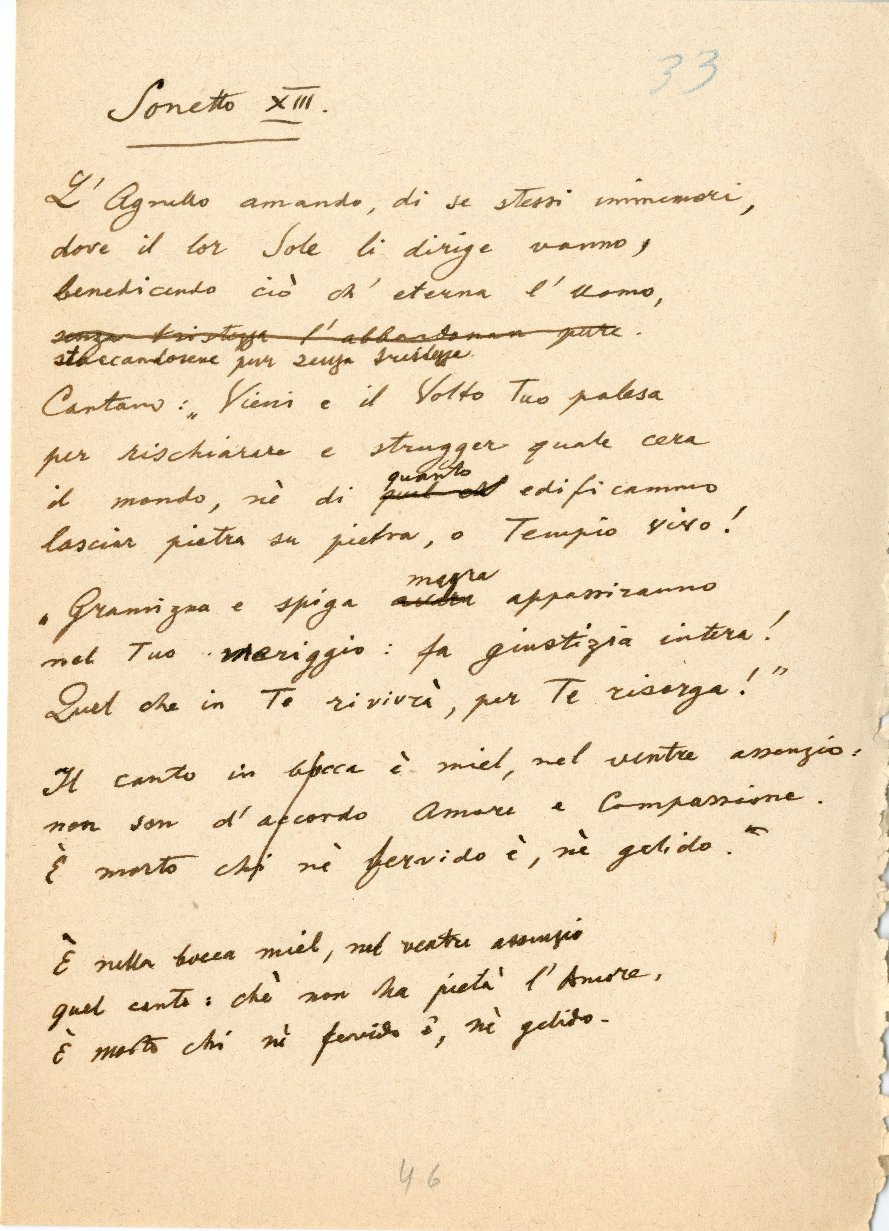 33
Sonetto XIII.
L' Agnello amando, di se stessi immemori,
dove il lor Sole li dirige vanno,
benedicendo ciò ch' eterna l' Uomo,
senza tristezza l' abbandonan pure.
staccandosene pur senza tristezza.
Cantano: „ Vieni e il Volto Tuo palesa
per rischiarare e strugger quale cera
il mondo, nè di quel ch' edificammo
quanto
lasciar pietra su pietra, o Tempio vivo!
„ Gramigna e spiga appassiranno
magra
nel Tuo meriggio: fa giustizia intera!
Quel che in Te rivivrà, per Te risorga! "
Il canto in bocca è miel, nel ventre assenzio:
non son d' accordo Amore e Compassione.
È morto chi nè fervido è, nè gelido."
È nella bocca miel, nel ventre assenzio
quel canto: chè non ha pietà l' Amore.
È morto chi nè fervido è, nè gelido.
46